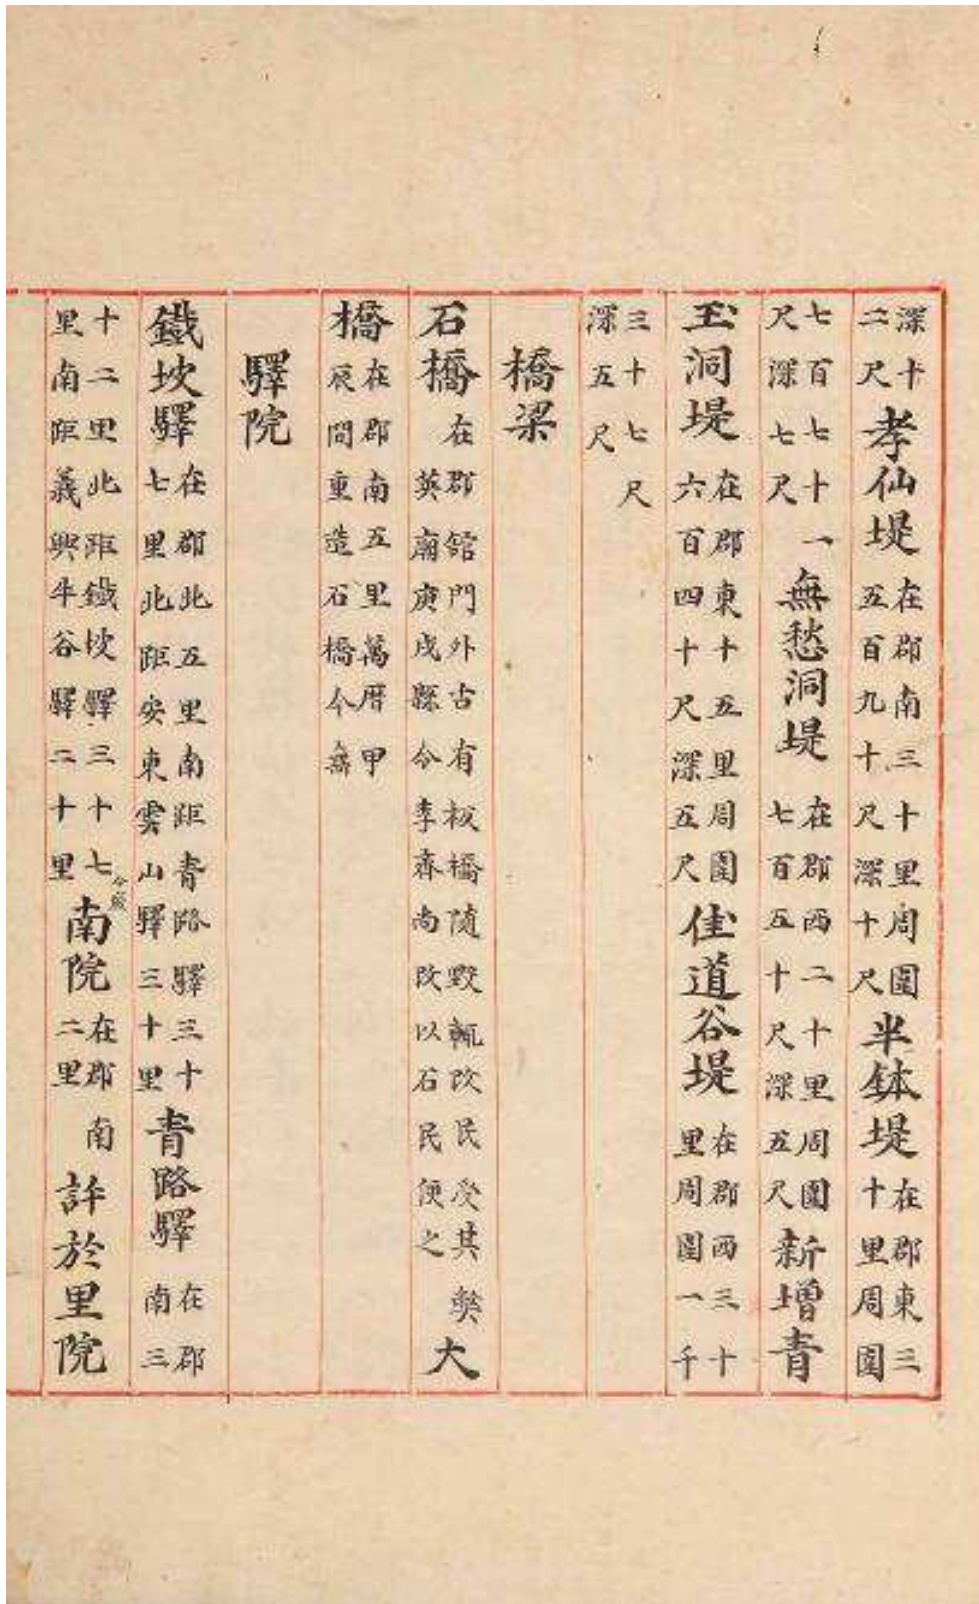 深十二尺孝仙堤在郡南三十里周圍五百九十尺深十尺半鉢堤在郡東三十里周圍
七百七十一尺深七尺無愁洞堤在郡西二十里周圍七百五十尺深五尺新增青
玉洞堤在郡東十五里周圍六百四十尺深五尺佳道谷堤在郡西三十里周圍一千
三十七尺深五尺
橋梁
石橋在郡館門外古有板橋隨毀輒改民受其弊英廟庚戌縣令李齊尚改以石民便之大
橋在郡南五里萬曆甲辰間重造石橋今廢
驛院
鐵坡驛在郡北五里南距青路驛三十七里北距安東雲山驛三十里青路驛在郡南三
十二里北距鐵坡驛三十七里南距義興牛谷驛二十里南院在郡南二里今廢許於里院